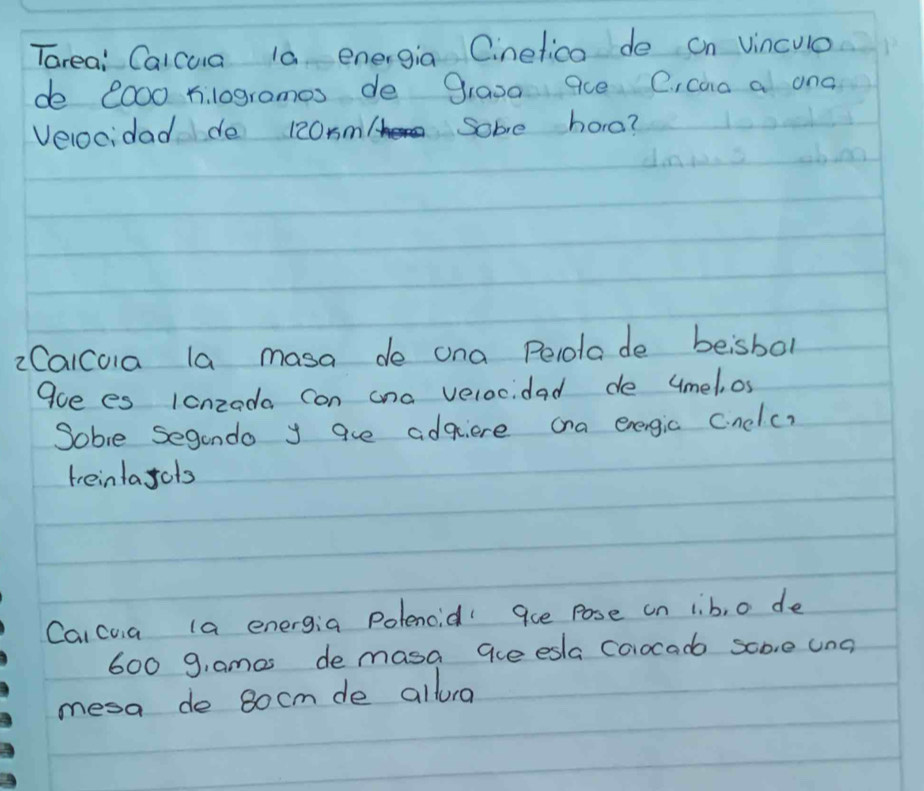 Tarea: Calcula la energia Cinetica de un vinculo
de 2000 kilogramos de grasa que Circula a una
velocidad de 120km/ sobre hora?
2 Calcula la masa de una Pelota de beisbol
que es lanzada con una velocidad de 4metros
Sobre segundo y que adquiere una energia cinetca
treintajols
Calcula la energia Potencial que Pose un libro de
600 gramos de masa que esta colocado sobre una
mesa de 80cm de altura